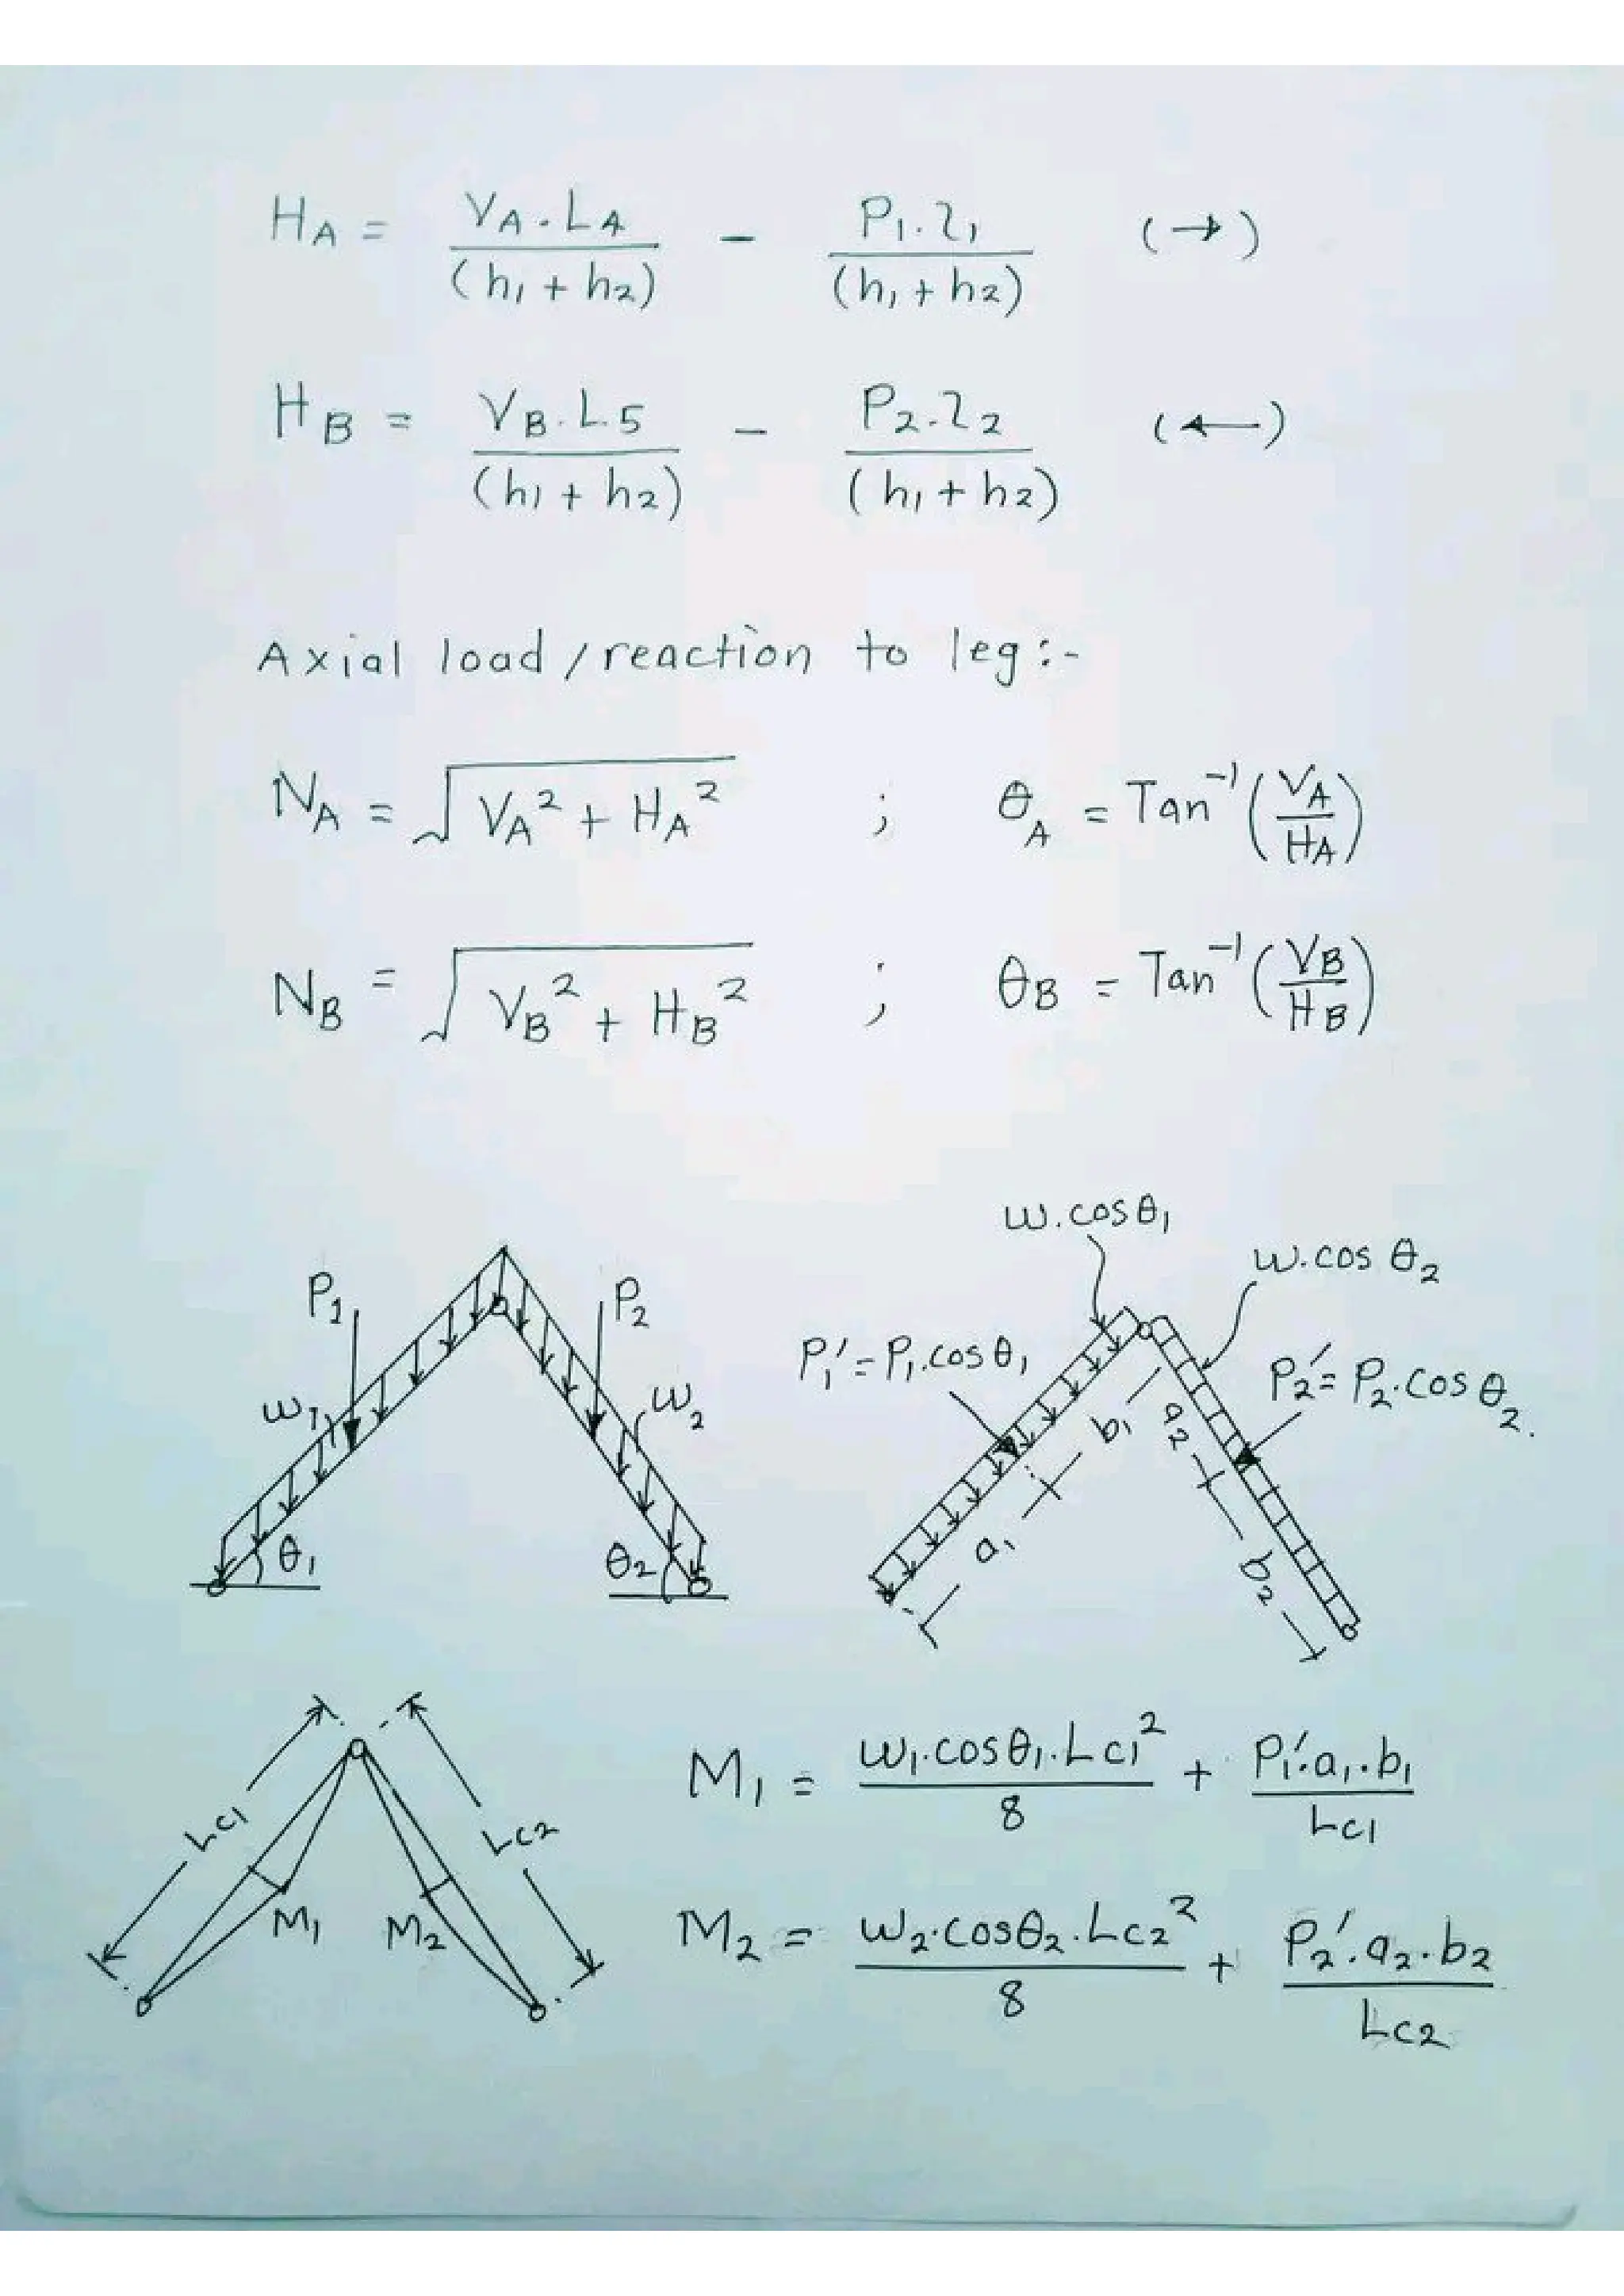 HA = VA.L4/(h1 + h2) - P1.l1/(h1 + h2) (→)
HB = VB.L5/(h1 + h2) - P2.l2/(h1 + h2) (←)
Axial load / reaction to leg :-
NA = √(VA² + HA²) ; θA = Tan⁻¹(VA/HA)
NB = √(VB² + HB²) ; θB = Tan⁻¹(VB/HB)
P1
P2
w1
w2
θ1
θ2
w.cosθ1
w.cos θ2
P1' = P1.cosθ1
P2' = P2.cosθ2.
a1
b1
a2
b2
Lc1
Lc2
M1
M2
M1 = w1.cosθ1.Lc1²/8 + P1'.a1.b1/Lc1
M2 = w2.cosθ2.Lc2²/8 + P2'.a2.b2/Lc2